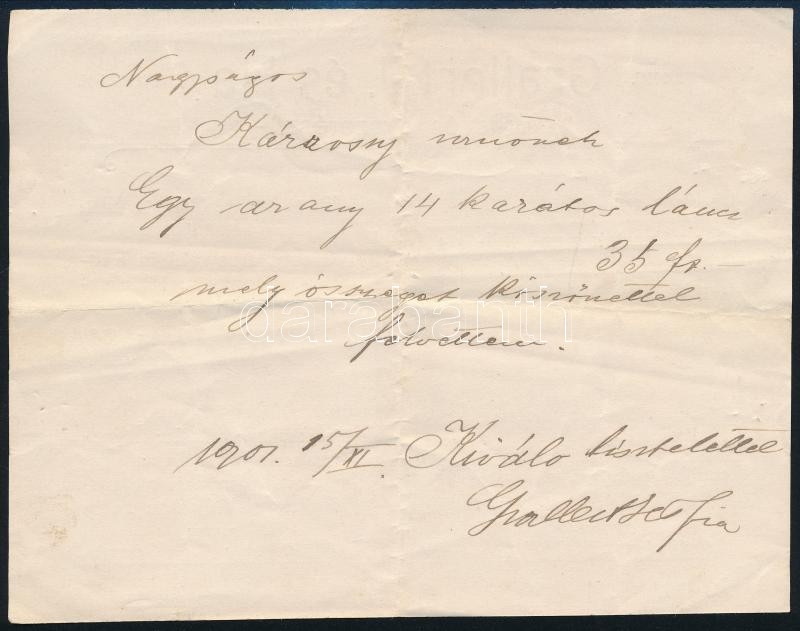 Nagyságos
Kárrosy urnőnek
Egy arany 14 karátos láncz
35 fr.–
mely összeget köszönettel
felvettem.
1901. 15/XI. Kiváló tisztelettel
fia
darabanth